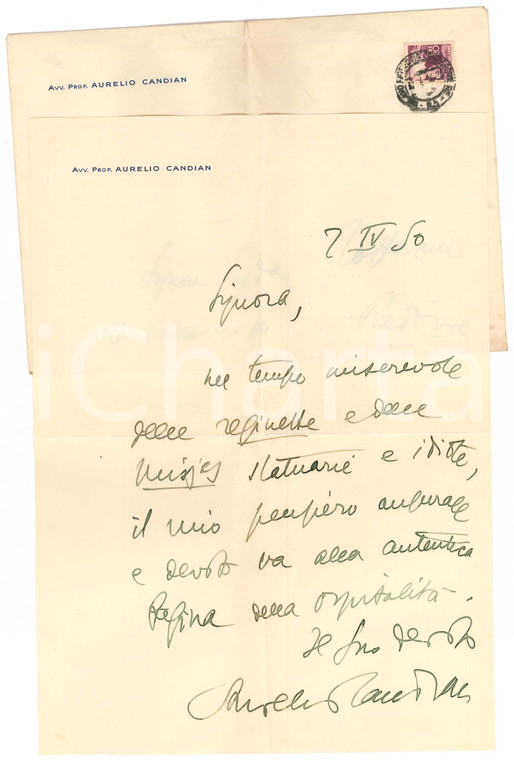 Avv. Prof. AURELIO CANDIAN
Avv. Prof. AURELIO CANDIAN
7 IV 50
Signora,
nel tempo miserevole
delle reginette e delle
Misses statuarie e idiote,
il mio pensiero augurale
e devoto va alla autentica
Regina della ospitalità.
Il Suo devoto
Aurelio Candian
iCharta